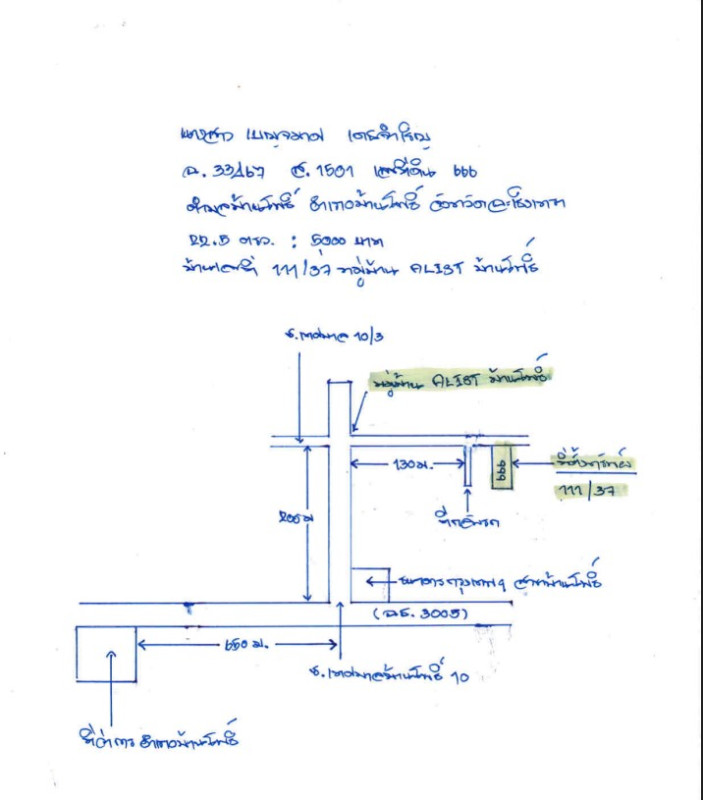 นางสาว เบญจมาศ
ฉ. 33467 ส. 1501 เลขที่ดิน 666
ตำบลบ้านโพธิ์ อำเภอบ้านโพธิ์ จังหวัดฉะเชิงเทรา
22.5 ตรว. : 5000 บาท
บ้านเลขที่ 111/37 หมู่บ้าน ALIST บ้านโพธิ์
ซ.เทศบาล 10/3
หมู่บ้าน ALIST บ้านโพธิ์
130 ม.
666
ที่ตั้งทรัพย์
111/37
200 ม
ที่กลับรถ
ธนาคารกรุงเทพฯ สาขาบ้านโพธิ์
(ฉช. 3005)
650 ม.
ซ.เทศบาลบ้านโพธิ์ 10
ที่ว่าการอำเภอบ้านโพธิ์